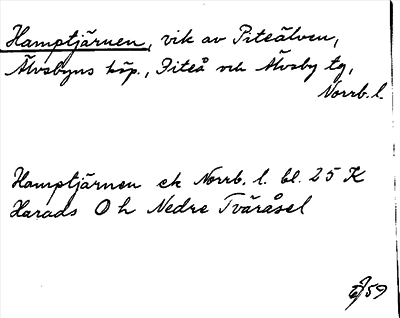 Hamptjärnen, vik av Piteälven,
Älvsbyns köp., Piteå och Älvsby tg,
Norrb. l.
Hamptjärnen ek Norrb. l. bl. 25 K
Harads O h Nedre Tväråsel
/59